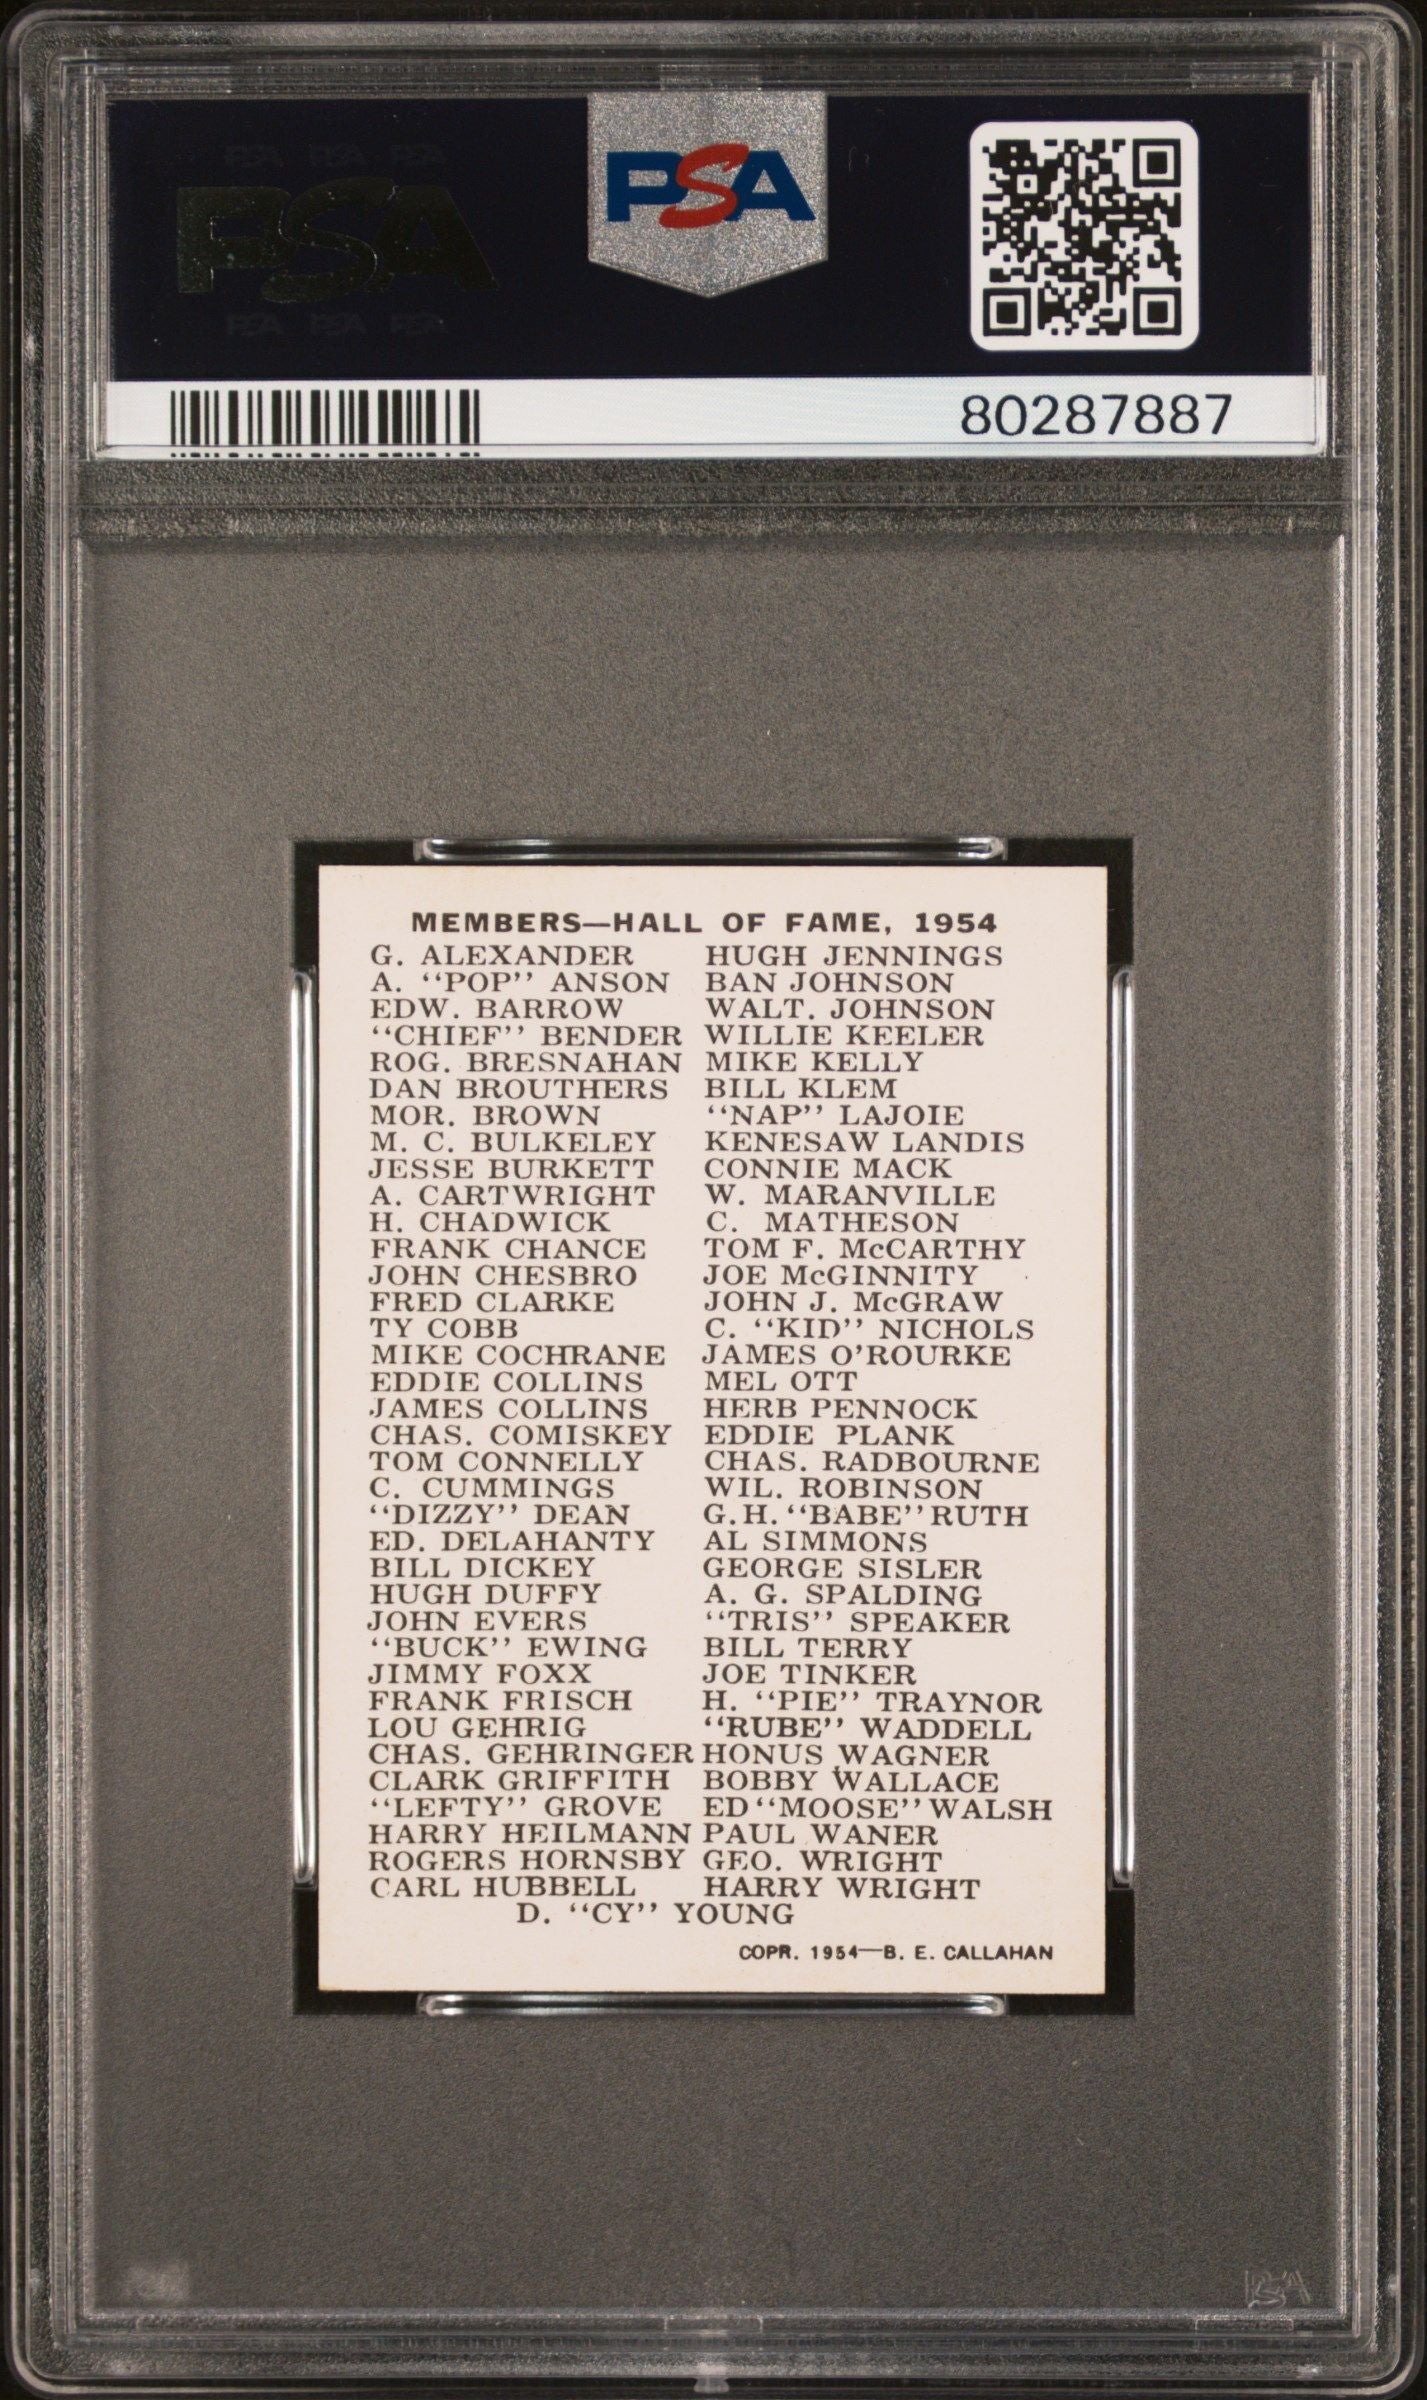 PSA PSA PSA
PSA
PSA PSA PSA
PSA
80287887
MEMBERS—HALL OF FAME, 1954
G. ALEXANDER HUGH JENNINGS
A. "POP" ANSON BAN JOHNSON
EDW. BARROW WALT. JOHNSON
"CHIEF" BENDER WILLIE KEELER
ROG. BRESNAHAN MIKE KELLY
DAN BROUTHERS BILL KLEM
MOR. BROWN "NAP" LAJOIE
M. C. BULKELEY KENESAW LANDIS
JESSE BURKETT CONNIE MACK
A. CARTWRIGHT W. MARANVILLE
H. CHADWICK C. MATHESON
FRANK CHANCE TOM F. McCARTHY
JOHN CHESBRO JOE McGINNITY
FRED CLARKE JOHN J. McGRAW
TY COBB C. "KID" NICHOLS
MIKE COCHRANE JAMES O'ROURKE
EDDIE COLLINS MEL OTT
JAMES COLLINS HERB PENNOCK
CHAS. COMISKEY EDDIE PLANK
TOM CONNELLY CHAS. RADBOURNE
C. CUMMINGS WIL. ROBINSON
"DIZZY" DEAN G.H. "BABE" RUTH
ED. DELAHANTY AL SIMMONS
BILL DICKEY GEORGE SISLER
HUGH DUFFY A. G. SPALDING
JOHN EVERS "TRIS" SPEAKER
"BUCK" EWING BILL TERRY
JIMMY FOXX JOE TINKER
FRANK FRISCH H. "PIE" TRAYNOR
LOU GEHRIG "RUBE" WADDELL
CHAS. GEHRINGER HONUS WAGNER
CLARK GRIFFITH BOBBY WALLACE
"LEFTY" GROVE ED "MOOSE" WALSH
HARRY HEILMANN PAUL WANER
ROGERS HORNSBY GEO. WRIGHT
CARL HUBBELL HARRY WRIGHT
D. "CY" YOUNG
COPR. 1954—B. E. CALLAHAN
PSA